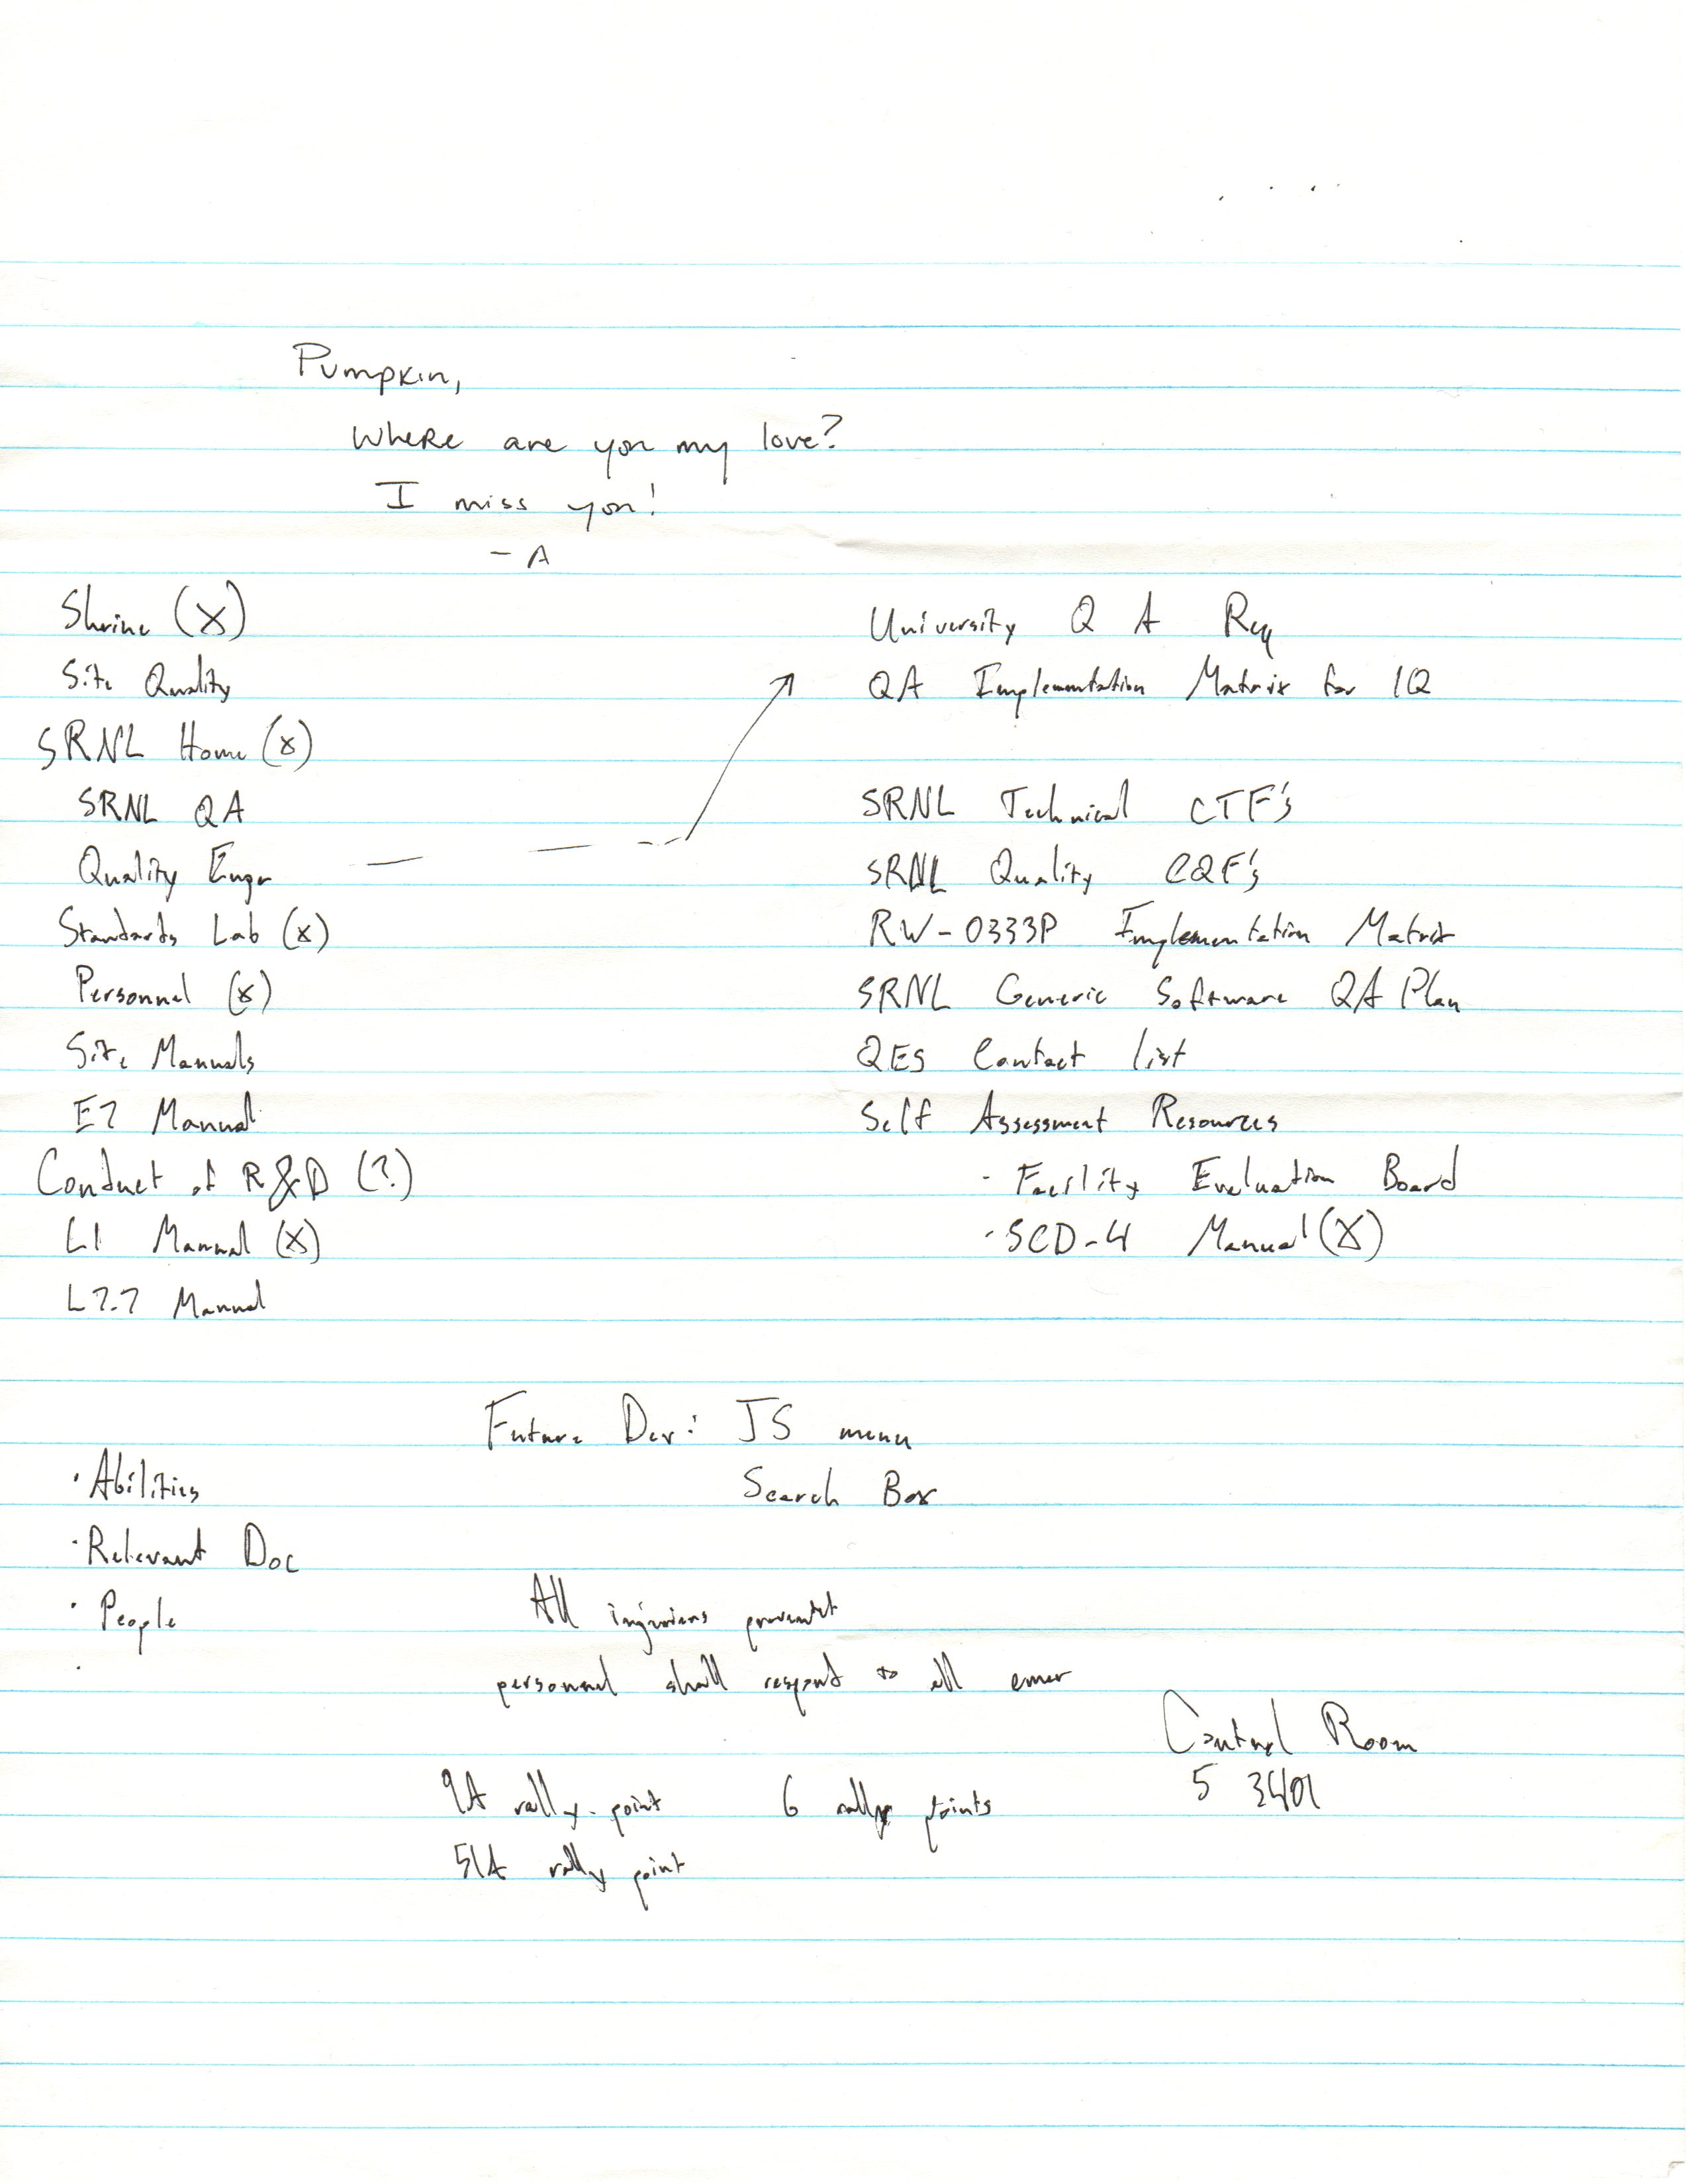 Pumpkin,
Where are you my love?
I miss you!
- A
Shrine (X)
Site Quality
SRNL Home (x)
SRNL QA
Quality Engr
Standards Lab (x)
Personnel (x)
Site Manuals
E7 Manual
Conduct of R&D (?)
L1 Manual (X)
L7.7 Manual
University QA Req
QA Implementation Matrix for 1Q
SRNL Technical CTF's
SRNL Quality CQF's
RW-0333P Implementation Matrix
SRNL Generic Software QA Plan
QES Contact list
Self Assessment Resources
- Facility Evaluation Board
- SCD-4 Manual (X)
Future Dev: JS menu
Search Box
· Abilities
· Relevant Doc
· People
All injuries
personnel shall respond to all emer
Control Room
5 3401
9A rally point
6 rally points
51A rally point